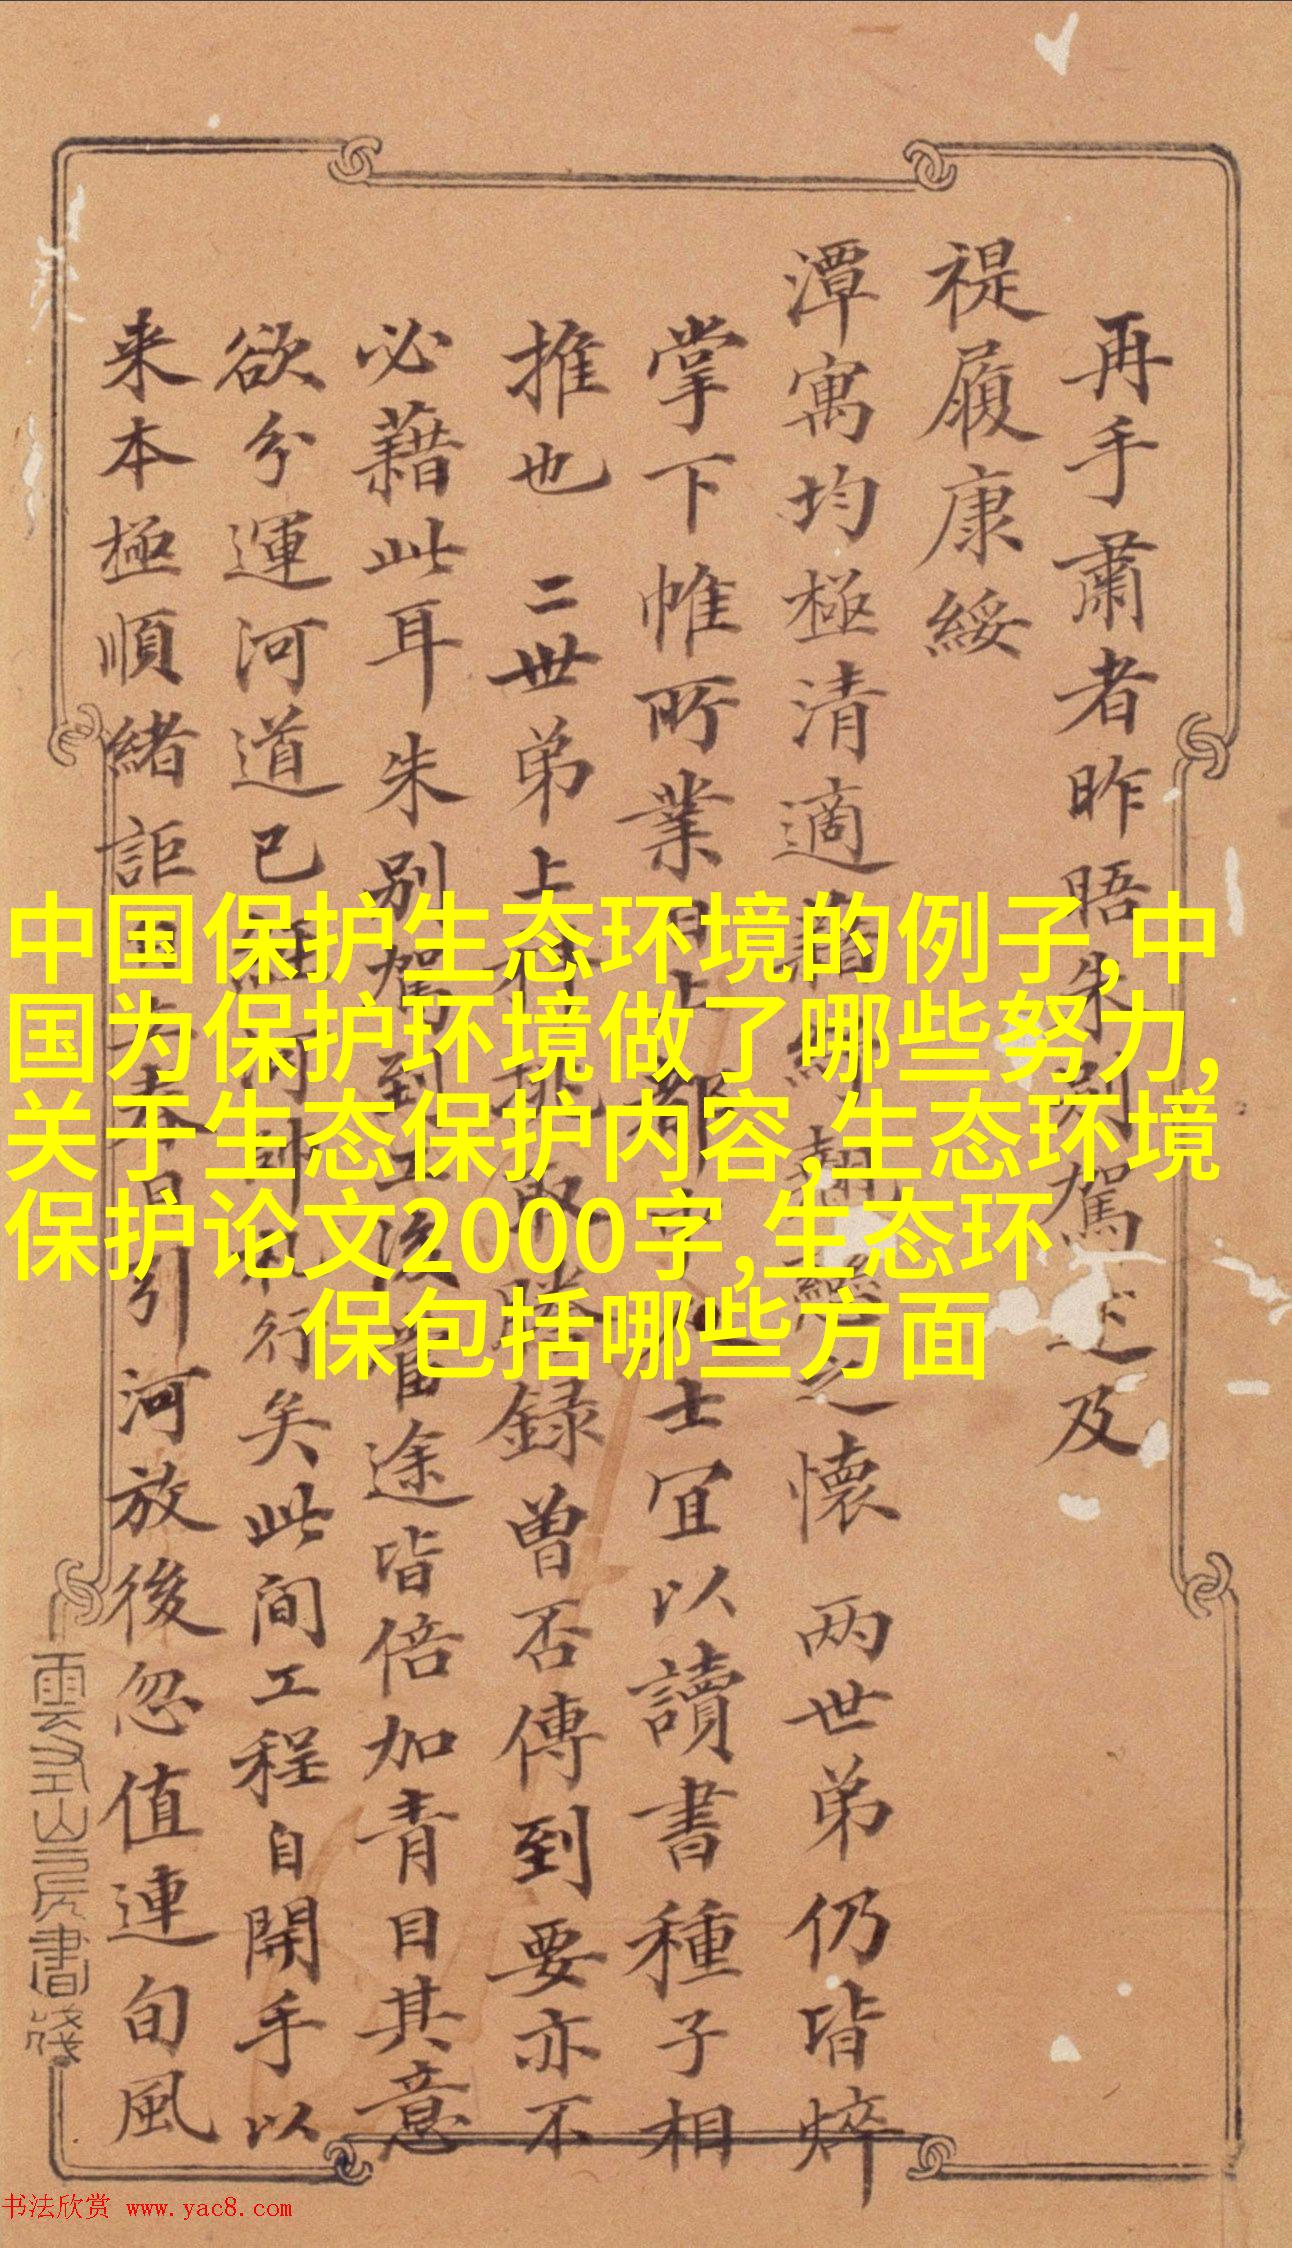 再手肅者昨晤朱别駕述及
禔履康綏
潭寓均極清適藉 之懷 两世弟仍皆焠
掌下帷所業日上都 士宜以讀書種子相
推也 二世弟上科挑取謄錄曾否傳到要亦不
必藉此耳朱别駕到工後當途皆倍加青目其意
欲兮運河道已 行矣此间工程自開手以
来本極順緒詎 春 引河放後忽值連旬風
雲 山房書箋
中国保护生态环境的例子,中
国为保护环境做了哪些努力,
关于生态保护内容,生态环境
保护论文2000字,生态环
保包括哪些方面
书法欣赏 www.yac8.com